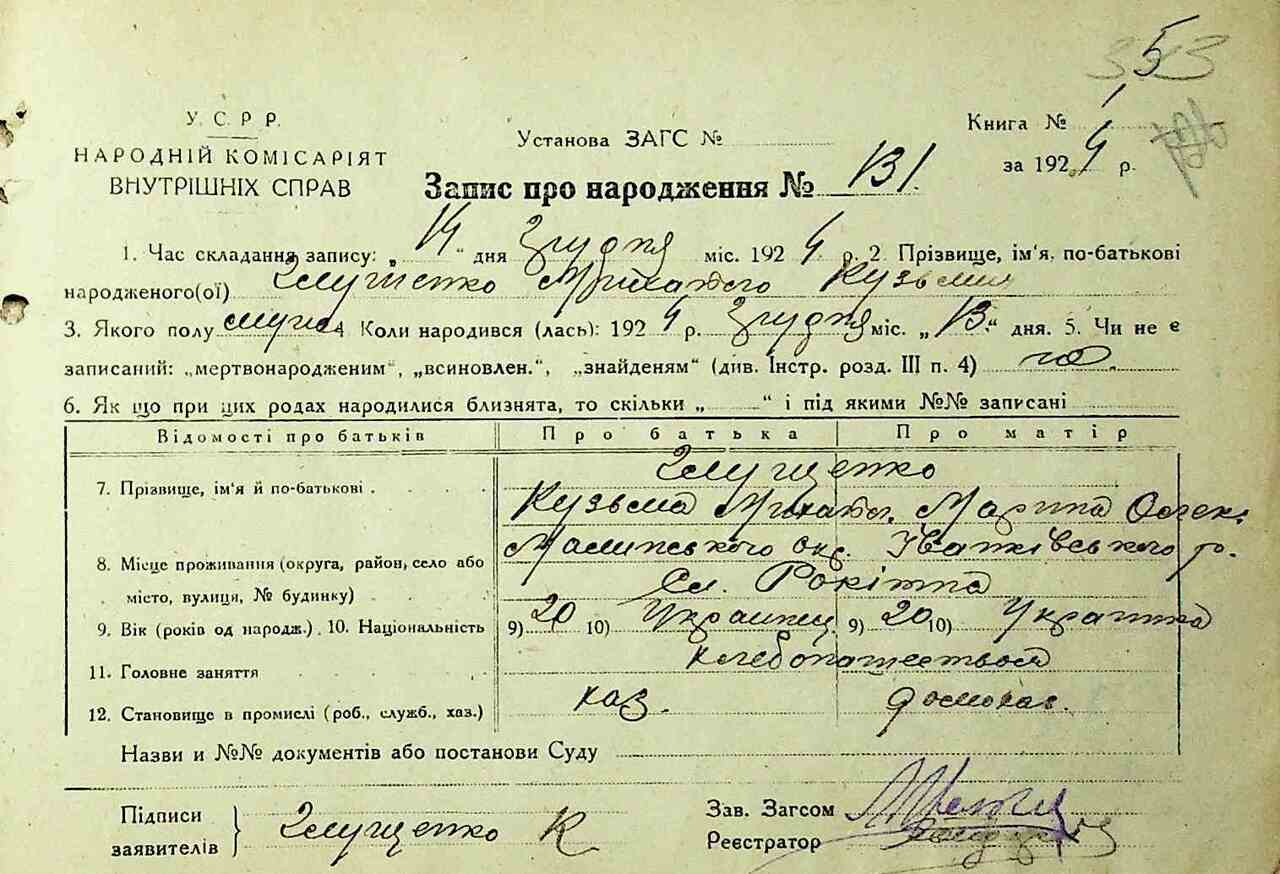 353
5
У. С. Р. Р.
НАРОДНІЙ КОМІСАРІЯТ
ВНУТРІШНІХ СПРАВ
Установа ЗАГС №
Книга № 1
за 1924 р.
Запис про народження № 131.
1. Час складання запису: „14" дня Грудня міс. 1924 р. 2. Прізвище, ім'я, по-батькові
народженого(ої) Глущенко Кузьмич
3. Якого полу муж. 4 Коли народився (лась): 1924 р. Грудня міс. „13." дня. 5. Чи не є
записаний: „мертвонародженим", „всиновлен.", „знайденям" (див. Інстр. розд. III п. 4)
6. Як що при цих родах народилися близнята, то скільки „ " і під якими №№ записані
Відомості про батьків Про батька Про матір
7. Прізвище, ім'я й по-батькові Глущенко
Кузьма Михайл. Марина Олек.
8. Місце проживання (округа, район, село або Малинського окр. Іванківського р.
місто, вулиця, № будинку) Сл. Рокітна
9. Вік (років од народж.). 10. Національність 9) 20 10) Украинец 9) 20 10) Украинка
11. Головне заняття хлебопашество
12. Становище в промислі (роб., служб., хаз.) хаз. домохаз.
Назви и №№ документів або постанови Суду
Підписи
заявителів Глущенко К
Зав. Загсом
Реєстратор